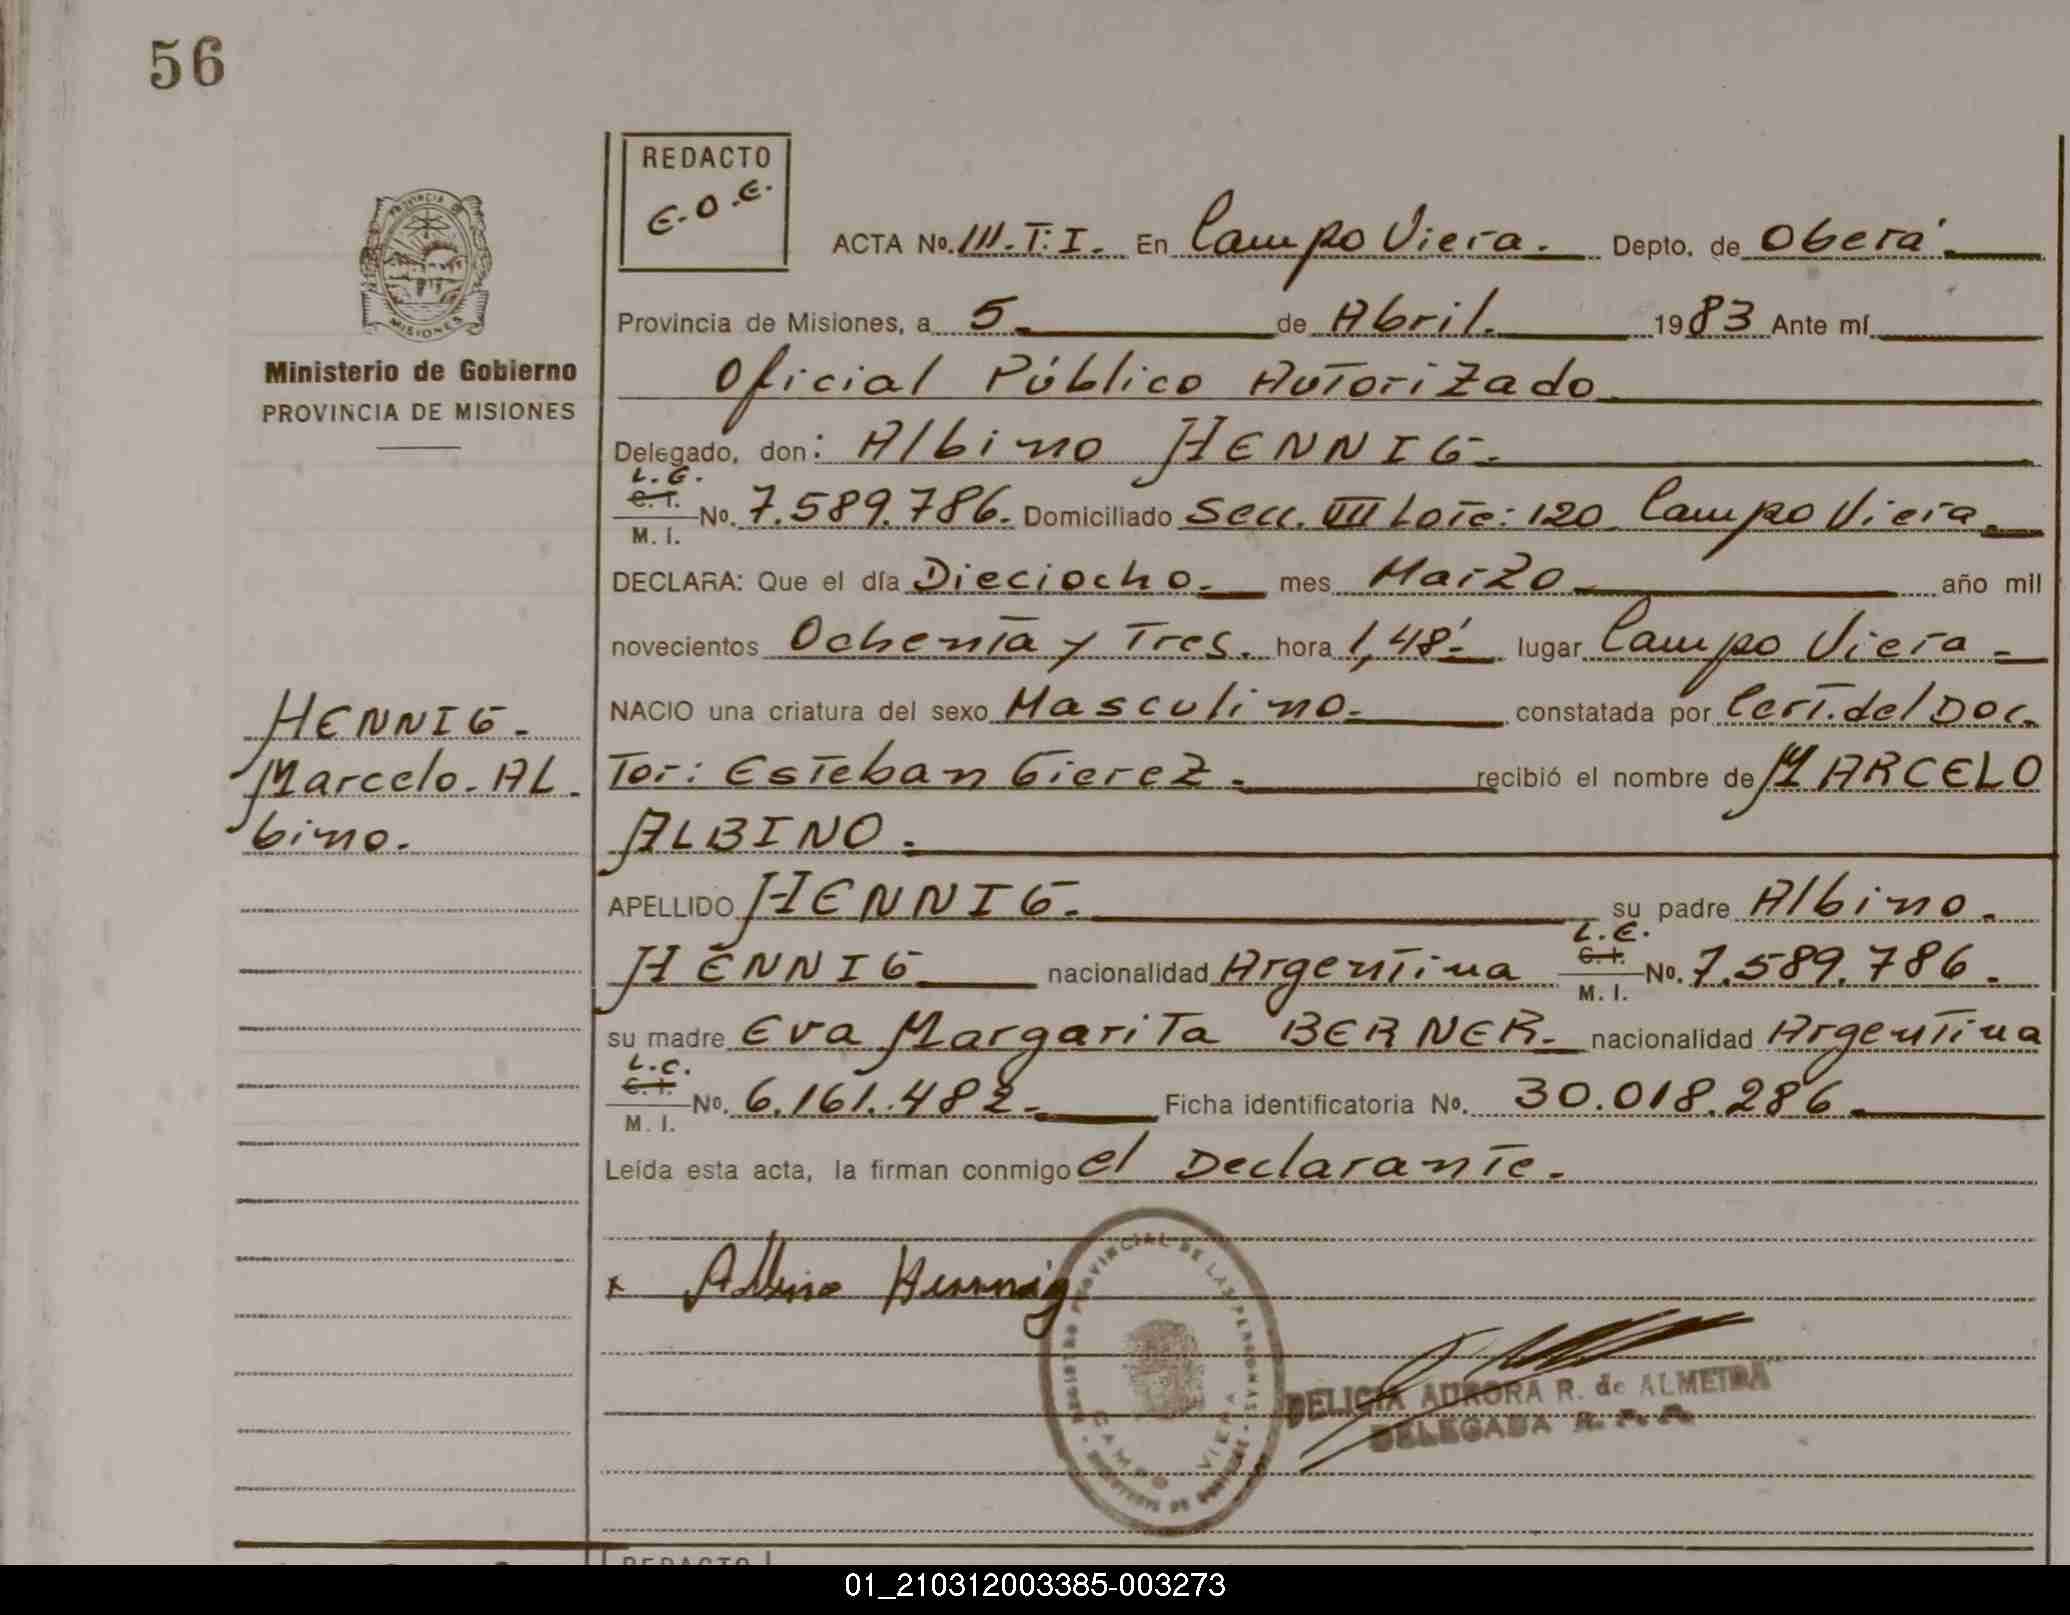 56
REDACTO
E.O.E.
PROVINCIA DE
MISIONES
Ministerio de Gobierno
PROVINCIA DE MISIONES
ACTA No. 111.T:I. En Campo Viera. Depto. de Oberá.
Provincia de Misiones, a 5 de Abril. 1983 Ante mí
Oficial Público Autorizado
Delegado, don: Albino HENNIG.
L.E.
C.I. No. 7.589.786. Domiciliado Secc. VIII Lote: 120 Campo Viera.
M. I.
DECLARA: Que el día Dieciocho. mes Marzo año mil
novecientos Ochenta y Tres. hora 1,48'. lugar Campo Viera
NACIO una criatura del sexo Masculino. constatada por Cert. del Doc
Tor: Esteban Gierez. recibió el nombre de MARCELO
ALBINO.
HENNIG.
Marcelo. AL.
bino.
APELLIDO HENNIG. su padre Albino.
HENNIG nacionalidad Argentina L.E. C.I. No. 7.589.786.
M. I.
su madre Eva Margarita BERNER. nacionalidad Argentina
L.C.
C.I. No. 6.161.482. Ficha identificatoria No. 30.018.286.
M. I.
Leída esta acta, la firman conmigo el Declarante.
x Albino Hennig
PROVINCIAL DE LAS PERSONAS
CAMPO VIERA
DELICIA AURORA R. de ALMEIDA
DELEGADA R. P. P.
REDACTO
01_210312003385-003273